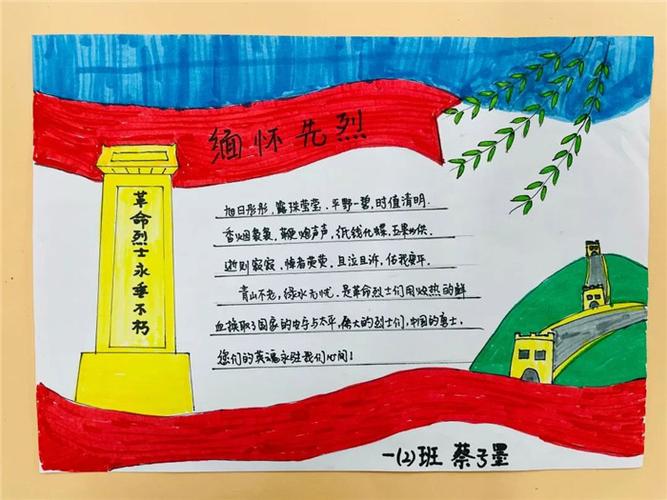 缅怀先烈
革命烈士永垂不朽
旭日彤彤,露珠莹莹,平野一碧,时值清明.
香烟袅袅,鞭炮声声,纸钱化蝶,玉果如供.
逝则寂寂,悼者茕茕,且泣且诉,佑我康平.
青山不老,绿水无忧,是革命烈士们用炽热的鲜
血换取了国家的安宁与太平,伟大的烈士们,中国的勇士,
您们的英魂永驻我们心间!
一(2)班 蔡子墨